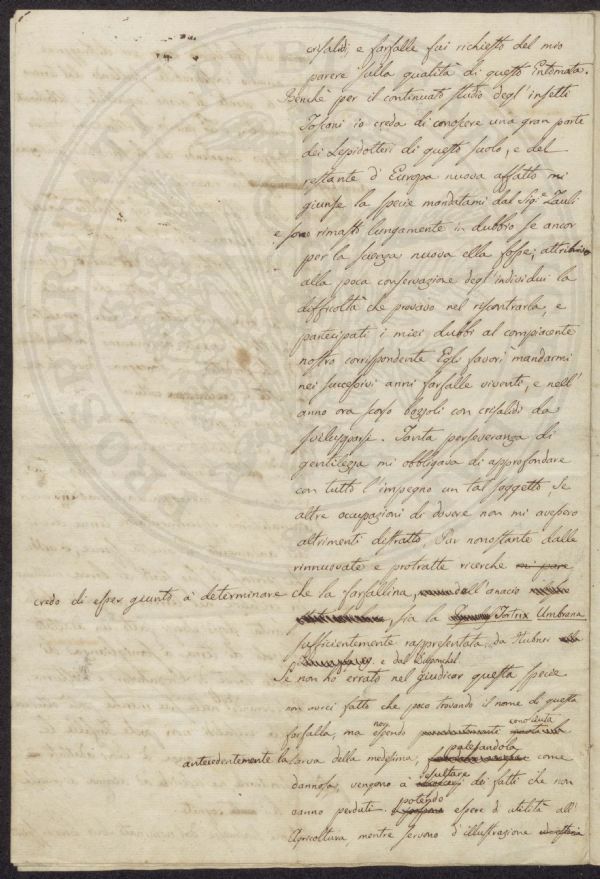 crisalidi, e farfalle fui richiesto del mio
parere sulla qualità di questo Entomata.
Benchè per il continuato studio degl'insetti
Toscani io creda di conoscere una gran parte
dei Lepidotteri di questo suolo, e del
restante d'Europa nuova affatto mi
giunse la specie mandatami dal Sigr. Zauli
e sono rimasto lungamente in dubbio se ancor
per la scienza nuova ella fosse; attribuivo
alla poca conservazione degl'individui la
difficoltà che provavo nel riscontrarla, e
partecipati i miei dubbi al compiacente
nostro corrispondente Egli favorì mandarmi
nei successivi anni farfalle viventi, e nell'
anno ora scorso bozzoli con crisalidi da
svilupparsi. Tanta perseveranza di
gentilezza mi obbligava di approfondare
con tutto l'impegno un tal soggetto, se
altre occupazioni di dovere non mi avessero
altrimenti distratto, Pur nonostante dalle
rinnuovate e protratte ricerche mi pare
credo di esser giunto à determinare che la farfallina, dell'anacio
sia la Tortrix Umbrana
sufficientemente rappresentata, da Hubner
e dal Duponchel.
Se non ho errato nel giudicar questa specie
non avrei fatto che poco trovando il nome di questa
farfalla, ma non essendo conosciuta
antecedentemente la larva della medesima, palesandola come
dannosa, vengono à resultare dei fatti che non
vanno perduti potendo essere di utilità all'
Agricoltura, mentre servono d'illustrazione